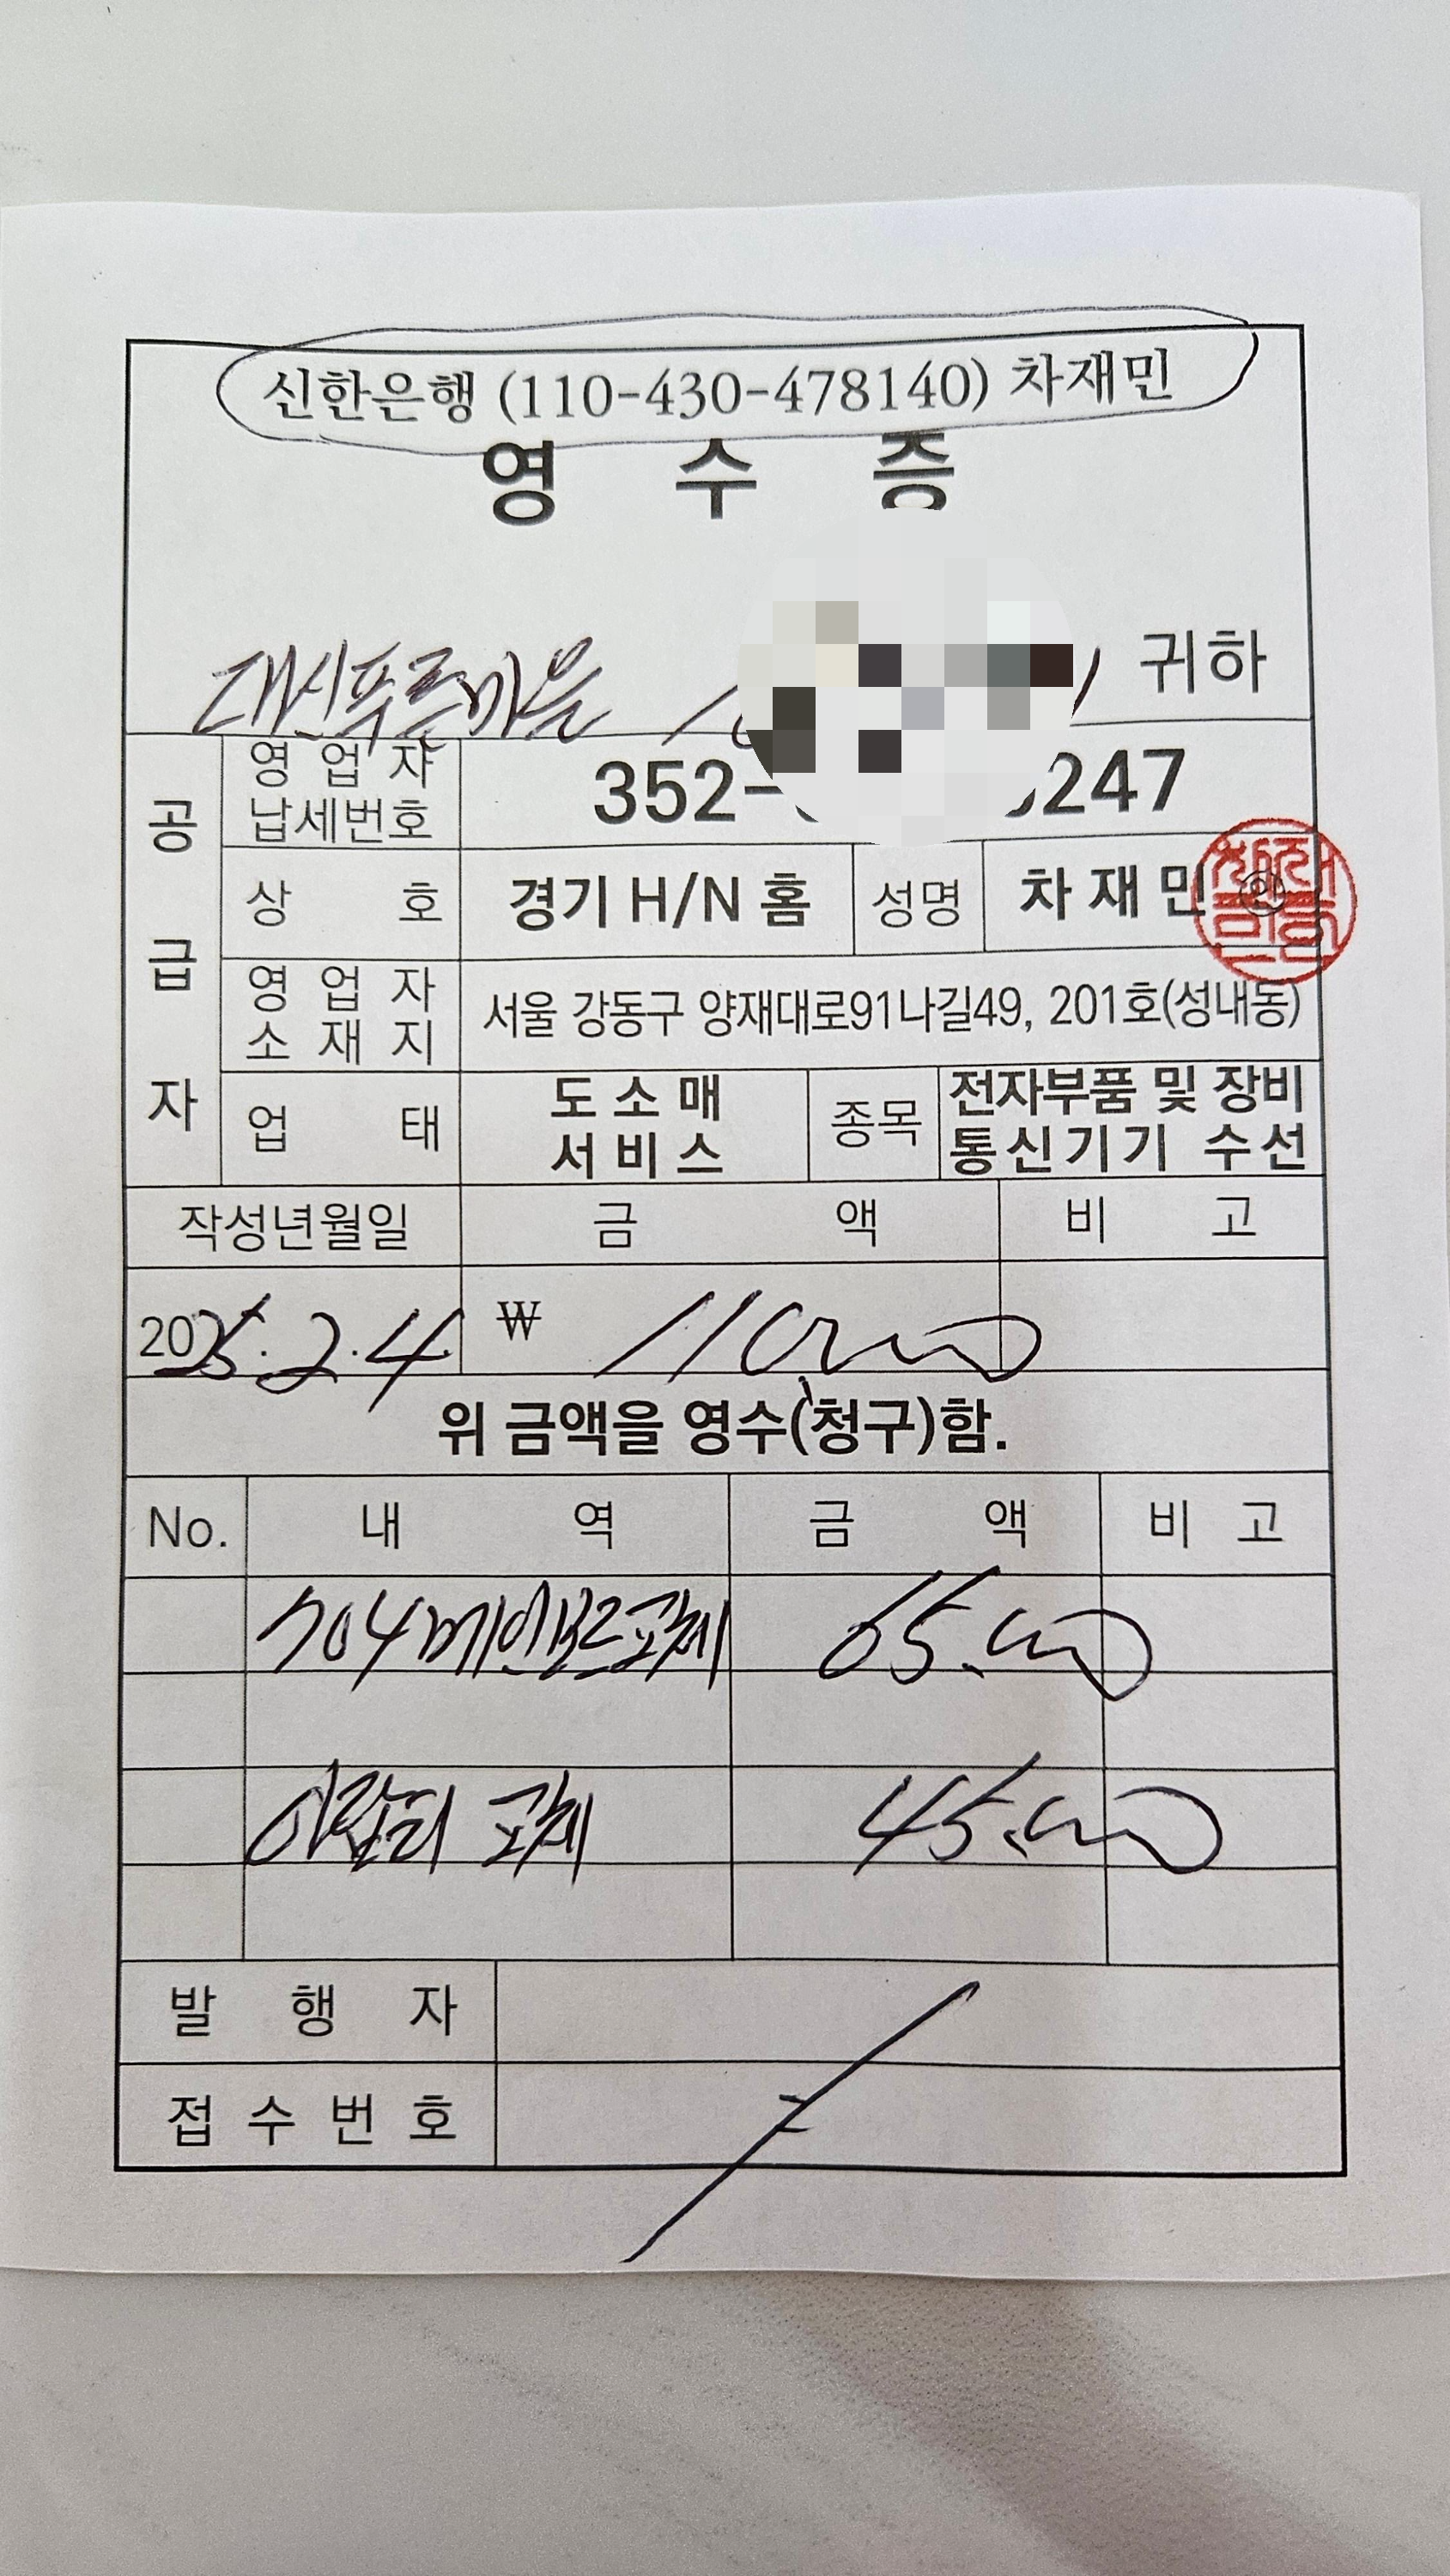 신한은행 (110-430-478140) 차재민
영 수 증
대신푸른마을 귀하
공급자
영업자 납세번호 352- 247
상 호 경기 H/N 홈 성명 차재민 ㊞
영업자 소재지 서울 강동구 양재대로91나길49, 201호(성내동)
업 태 도소매 서비스 종목 전자부품 및 장비 통신기기 수선
작성년월일 금 액 비 고
2025.2.4 ₩ 110,000
위 금액을 영수(청구)함.
No. 내 역 금 액 비 고
704메인보드교체 65.000
아답터 교체 45.000
발 행 자
접 수 번 호